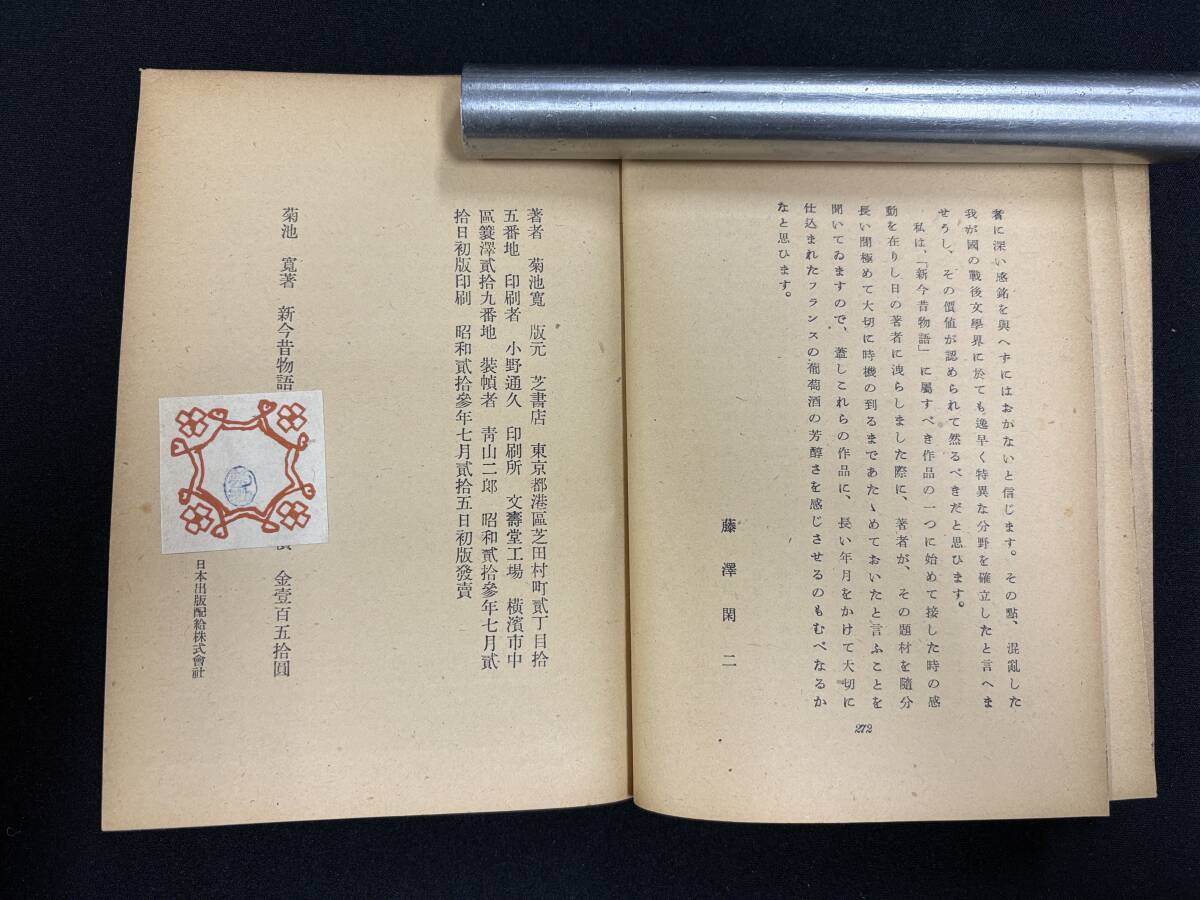 者に深い感銘を與へずにはおかないと信じます。その點、混亂した
我が國の戰後文學界に於ても逸早く特異な分野を確立したと言へま
せうし、その價値が認められて然るべきだと思ひます。
私は、「新今昔物語」に屬すべき作品の一つに始めて接した時の感
動を在りし日の著者に洩らしました際に、著者が、その題材を隨分
長い間極めて大切に時機の到るまであたゝめておいたと言ふことを
聞いてゐますので、蓋しこれらの作品に、長い年月をかけて大切に
仕込まれたフランスの葡萄酒の芳醇さを感じさせるのもむべなるか
なと思ひます。
藤澤閑二
272
著者 菊池寬 版元 芝書店 東京都港區芝田村町貳丁目拾
五番地 印刷者 小野通久 印刷所 文壽堂工場 橫濱市中
區簑澤貳拾九番地 裝幀者 靑山二郎 昭和貳拾參年七月貳
拾日初版印刷 昭和貳拾參年七月貳拾五日初版發賣
菊池 寬著 新今昔物語 金壹百五拾圓
日本出版配給株式會社